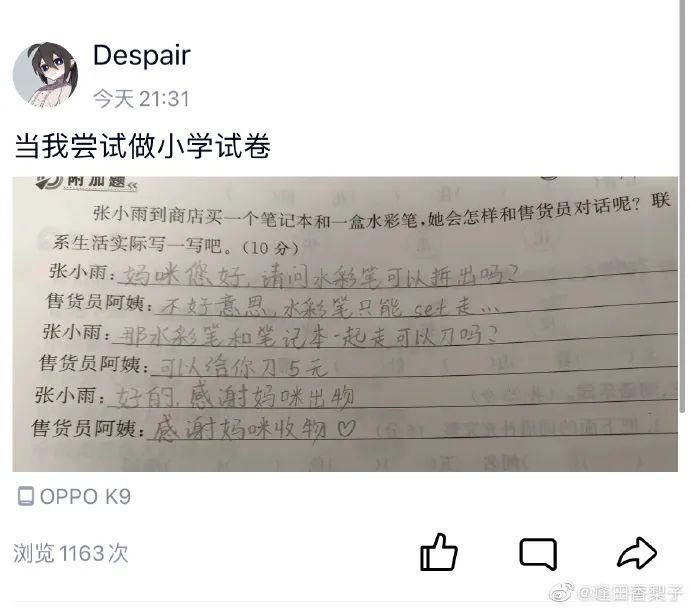 Despair
今天 21:31
当我尝试做小学试卷
附加题
张小雨到商店买一个笔记本和一盒水彩笔,她会怎样和售货员对话呢？联
系生活实际写一写吧。(10 分)
张小雨：妈咪您好,请问水彩笔可以拆出吗？
售货员阿姨：不好意思,水彩笔只能 set 走…
张小雨：那水彩笔和笔记本一起走可以刀吗？
售货员阿姨：可以给你刀5元
张小雨：好的,感谢妈咪出物
售货员阿姨：感谢妈咪收物♡
OPPO K9
浏览1163次
@逢田香梨子